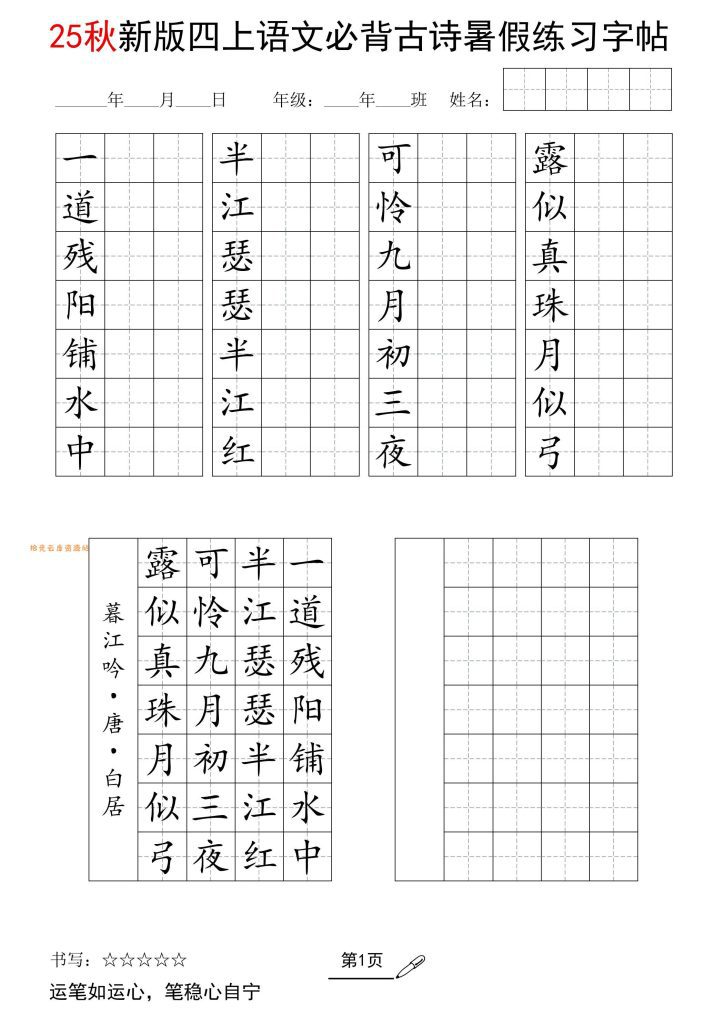 25秋新版四上语文必背古诗暑假练习字帖
______年____月____日 年级：____年____班 姓名：
一道残阳铺水中
半江瑟瑟半江红
可怜九月初三夜
露似真珠月似弓
一道残阳铺水中
半江瑟瑟半江红
可怜九月初三夜
露似真珠月似弓
暮江吟·唐·白居
书写：☆☆☆☆☆
第1页
运笔如运心，笔稳心自宁